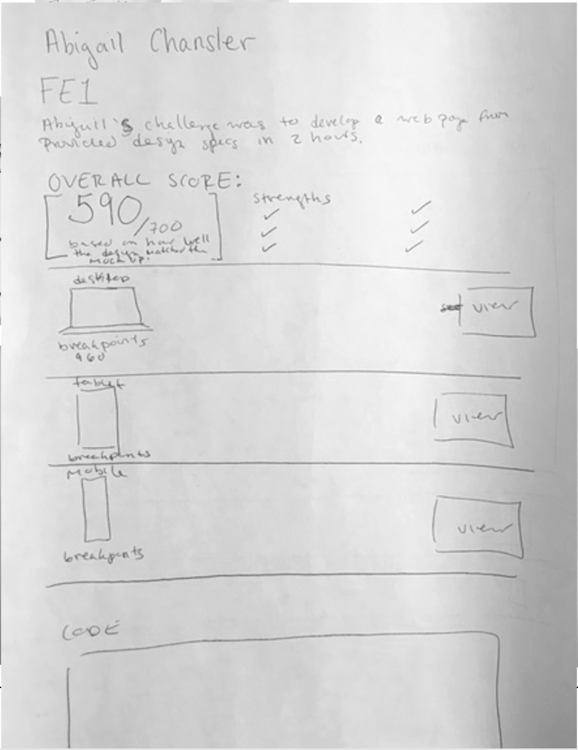 Abigail Chansler
FE1
Abigail's challenge was to develop a web page from
provided design specs in 2 hours.
OVERALL SCORE:
590/700
based on how well
the design matched the
mockup.
Strengths
desktop
view
breakpoints
960
tablet
view
breakpoints
mobile
view
breakpoints
CODE